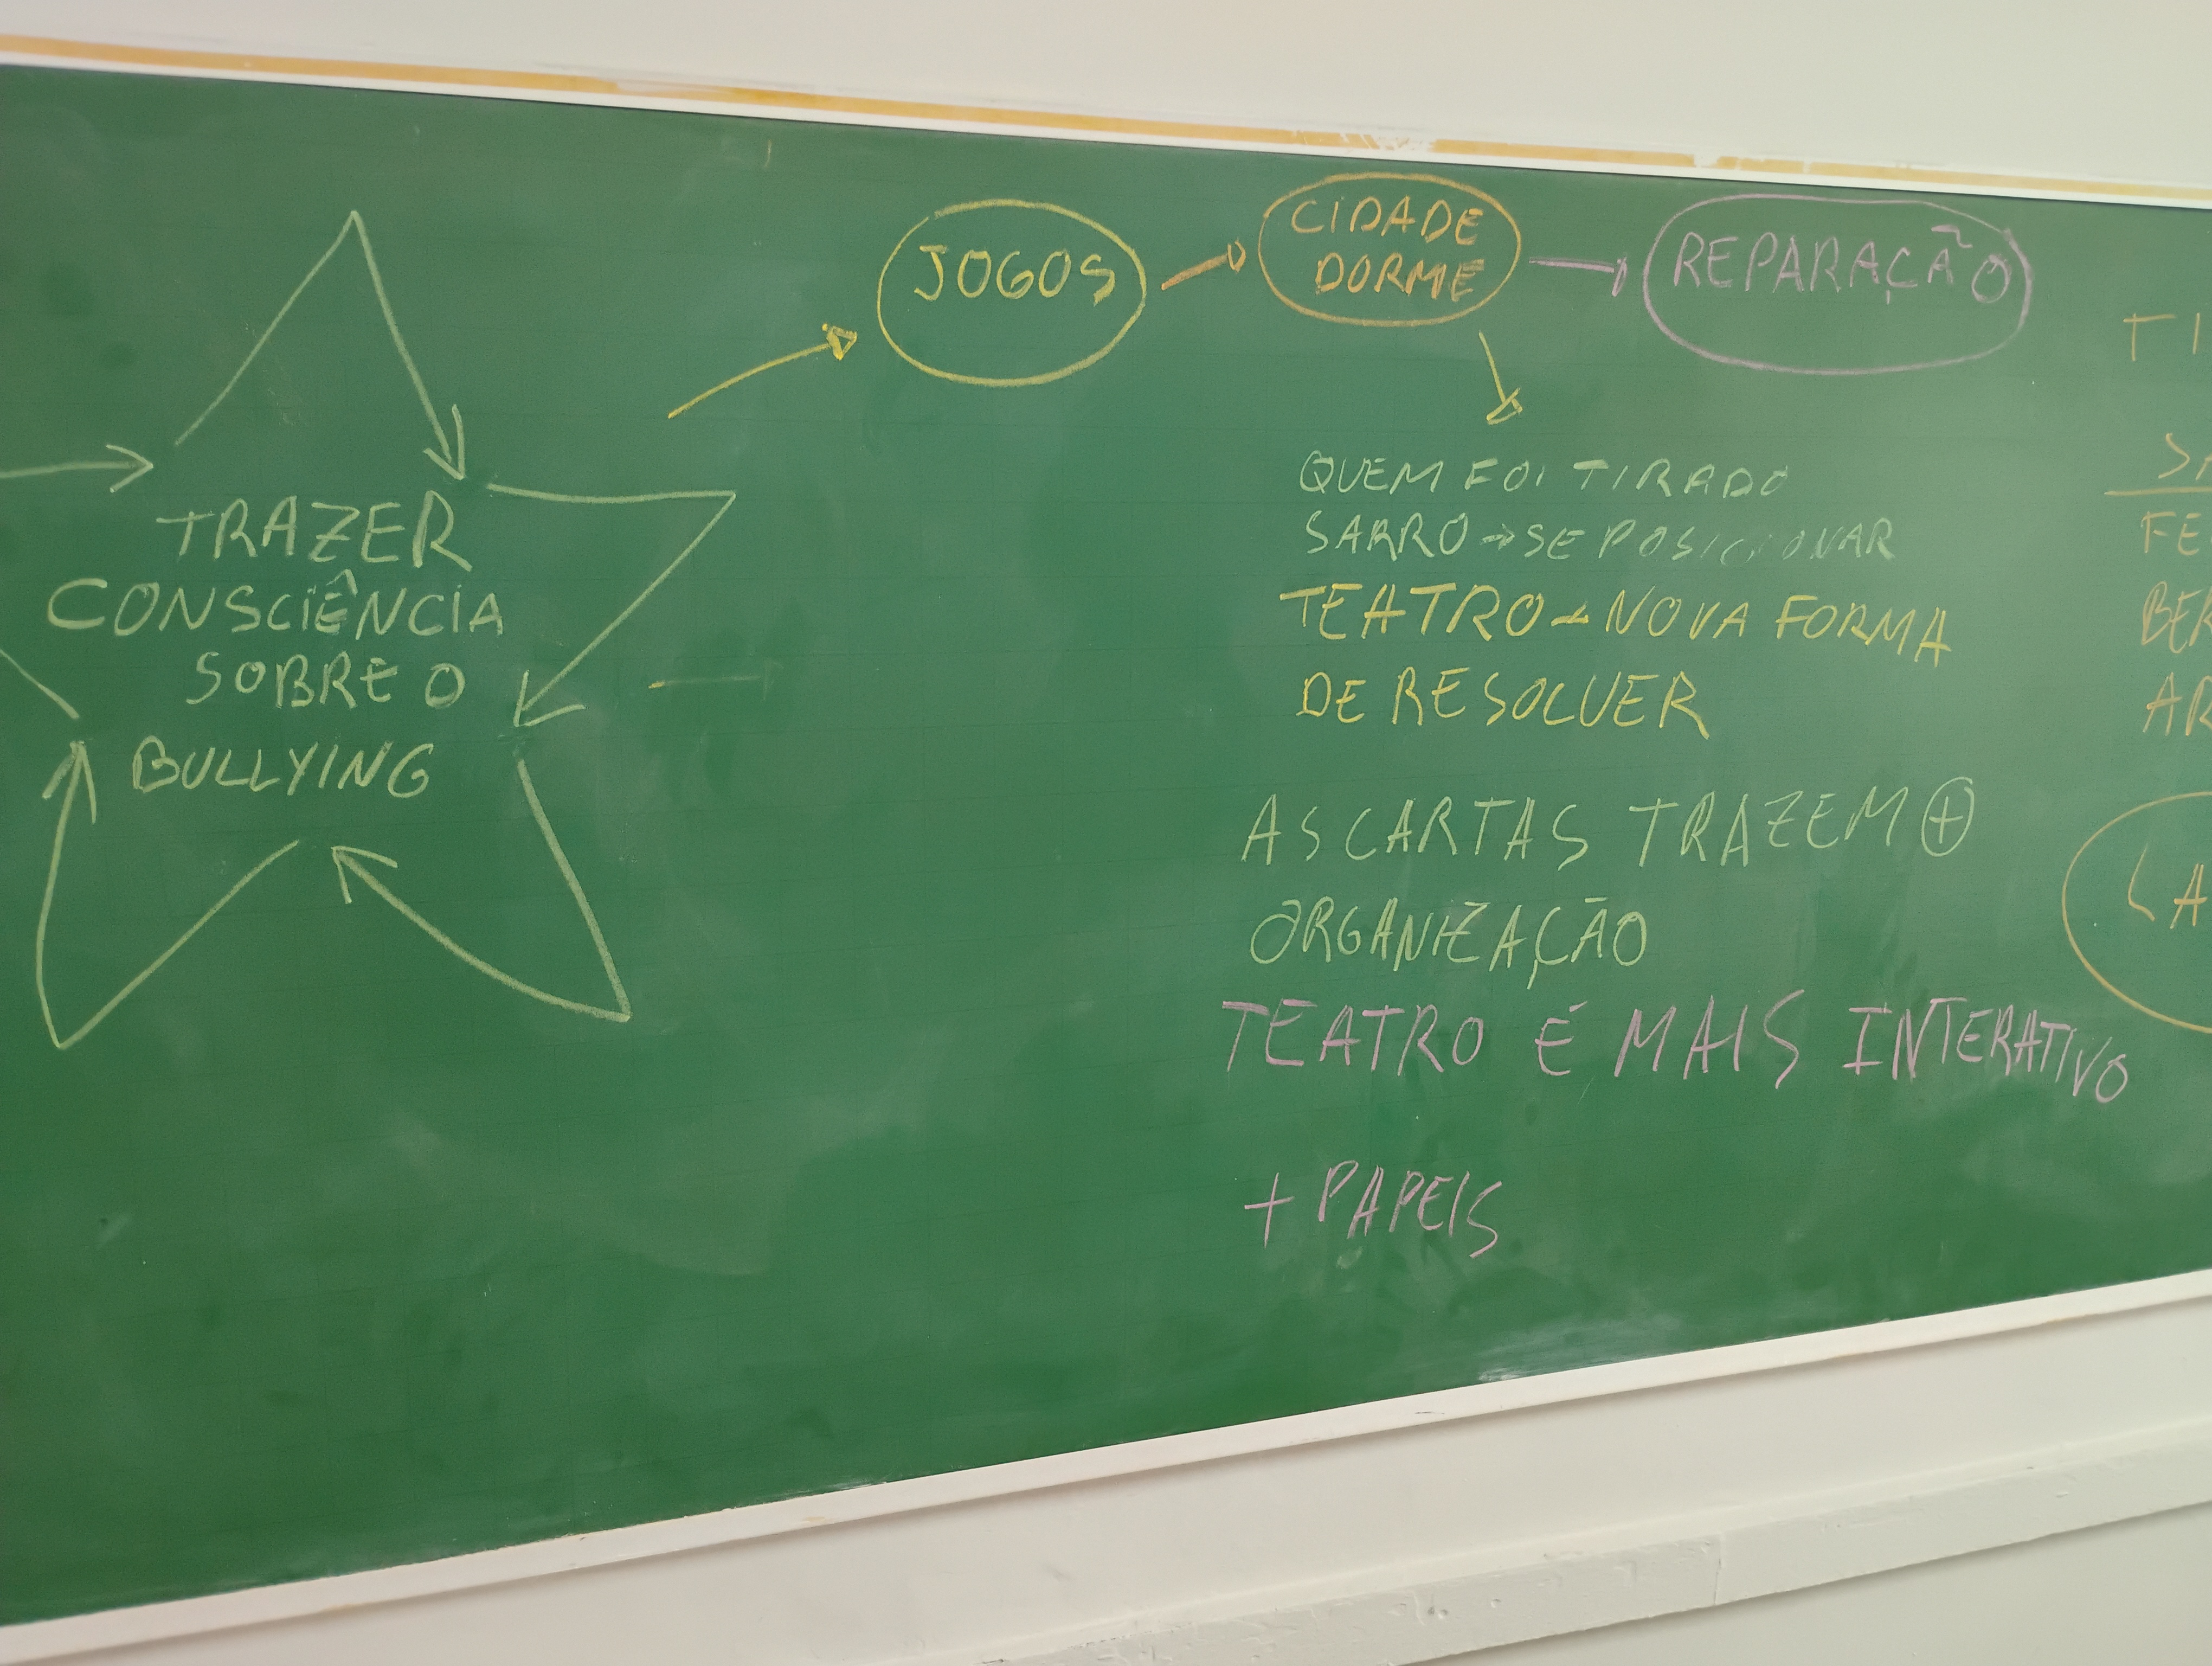 TRAZER
CONSCIÊNCIA
SOBRE O
BULLYING
JOGOS
CIDADE
DORME
REPARAÇÃO
QUEM FOI TIRADO
SARRO → SE POSICIONAR
TEATRO → NOVA FORMA
DE RESOLVER
AS CARTAS TRAZEM ⊕
ORGANIZAÇÃO
TEATRO É MAIS INTERATIVO
+ PAPEIS